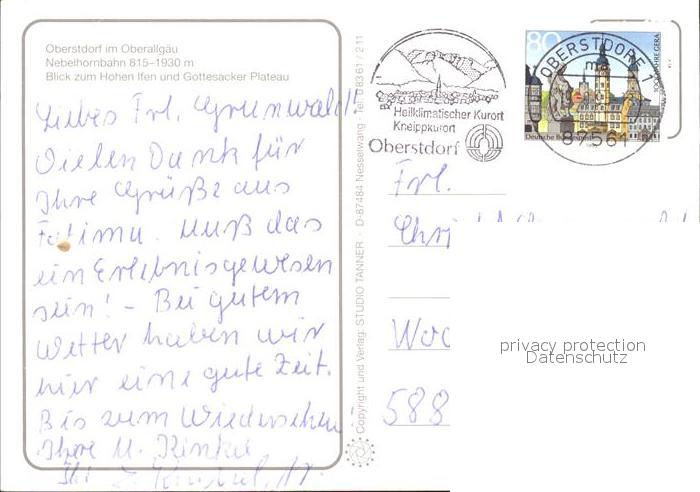 Oberstdorf im Oberallgäu
Nebelhornbahn 815–1930 m
Blick zum Hohen Ifen und Gottesacker Plateau
Liebes Frl. Grunwald!
Vielen Dank für
Ihre Grüße aus
Fatima. Muß das
ein Erlebnis gewesen
sein! – Bei gutem
Wetter haben wir
hier eine gute Zeit.
Bis zum Wiedersehen
Ihre M. Kinkel
Copyright und Verlag: STUDIO TANNER · D-87484 Nesselwang · Tel. 0 83 61 / 2 11
Heilklimatischer Kurort
Kneippkurort
Oberstdorf
80
1000 JAHRE GERA
Deutsche Bundespost
OBERSTDORF 1
87561
Frl.
588
privacy protection
Datenschutz